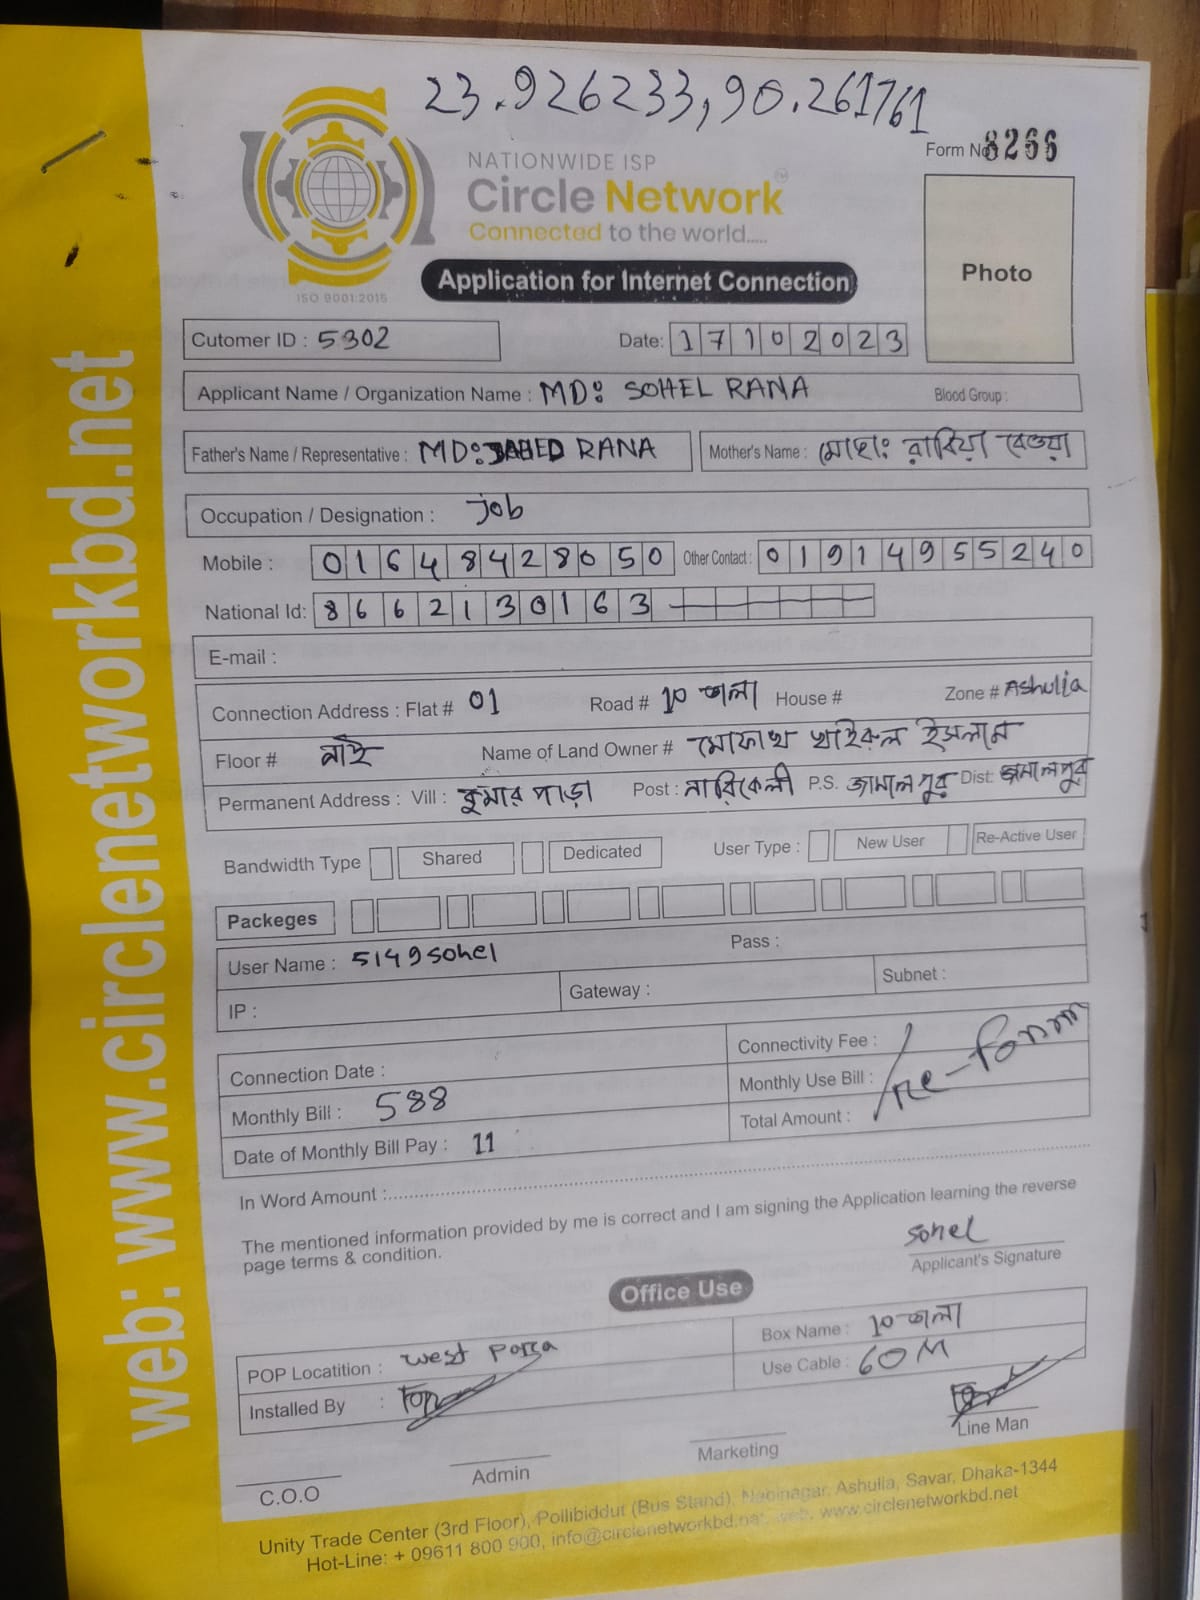 23.926233, 90.261761
Form No 8266
NATIONWIDE ISP
Circle Network
Connected to the world.....
ISO 9001:2015
Application for Internet Connection
Photo
Cutomer ID : 5302
Date: 17102023
Applicant Name / Organization Name : MD: SOHEL RANA Blood Group :
Father's Name / Representative : MD: JAHED RANA Mother's Name : মোছাঃ রাবিয়া বেওয়া
Occupation / Designation : Job
Mobile : 01648428050 Other Contact : 01914955240
National Id: 8662130163
E-mail :
Connection Address : Flat # 01 Road # 10 তলা House # Zone # Ashulia
Floor # নাই Name of Land Owner # মোফাখ খাইরুল ইসলাম
Permanent Address : Vill : কুমার পাড়া Post : নারিকেলী P.S. জামালপুর Dist: জামালপুর
Bandwidth Type Shared Dedicated User Type : New User Re-Active User
Packeges
User Name : 5149sohel Pass :
IP : Gateway : Subnet :
Connection Date : Connectivity Fee :
Monthly Bill : 588 Monthly Use Bill : Re-form
Date of Monthly Bill Pay : 11 Total Amount :
In Word Amount :
The mentioned information provided by me is correct and I am signing the Application learning the reverse
page terms & condition.
Sohel
Applicant's Signature
Office Use
POP Locatition : West Para Box Name : 10 তলা
Installed By : Use Cable : 60 M
C.O.O Admin Marketing Line Man
Unity Trade Center (3rd Floor), Pollibiddut (Bus Stand), Nabinagar, Ashulia, Savar, Dhaka-1344
Hot-Line: + 09611 800 900, info@circlenetworkbd.net, web. www.circlenetworkbd.net
web: www.circlenetworkbd.net